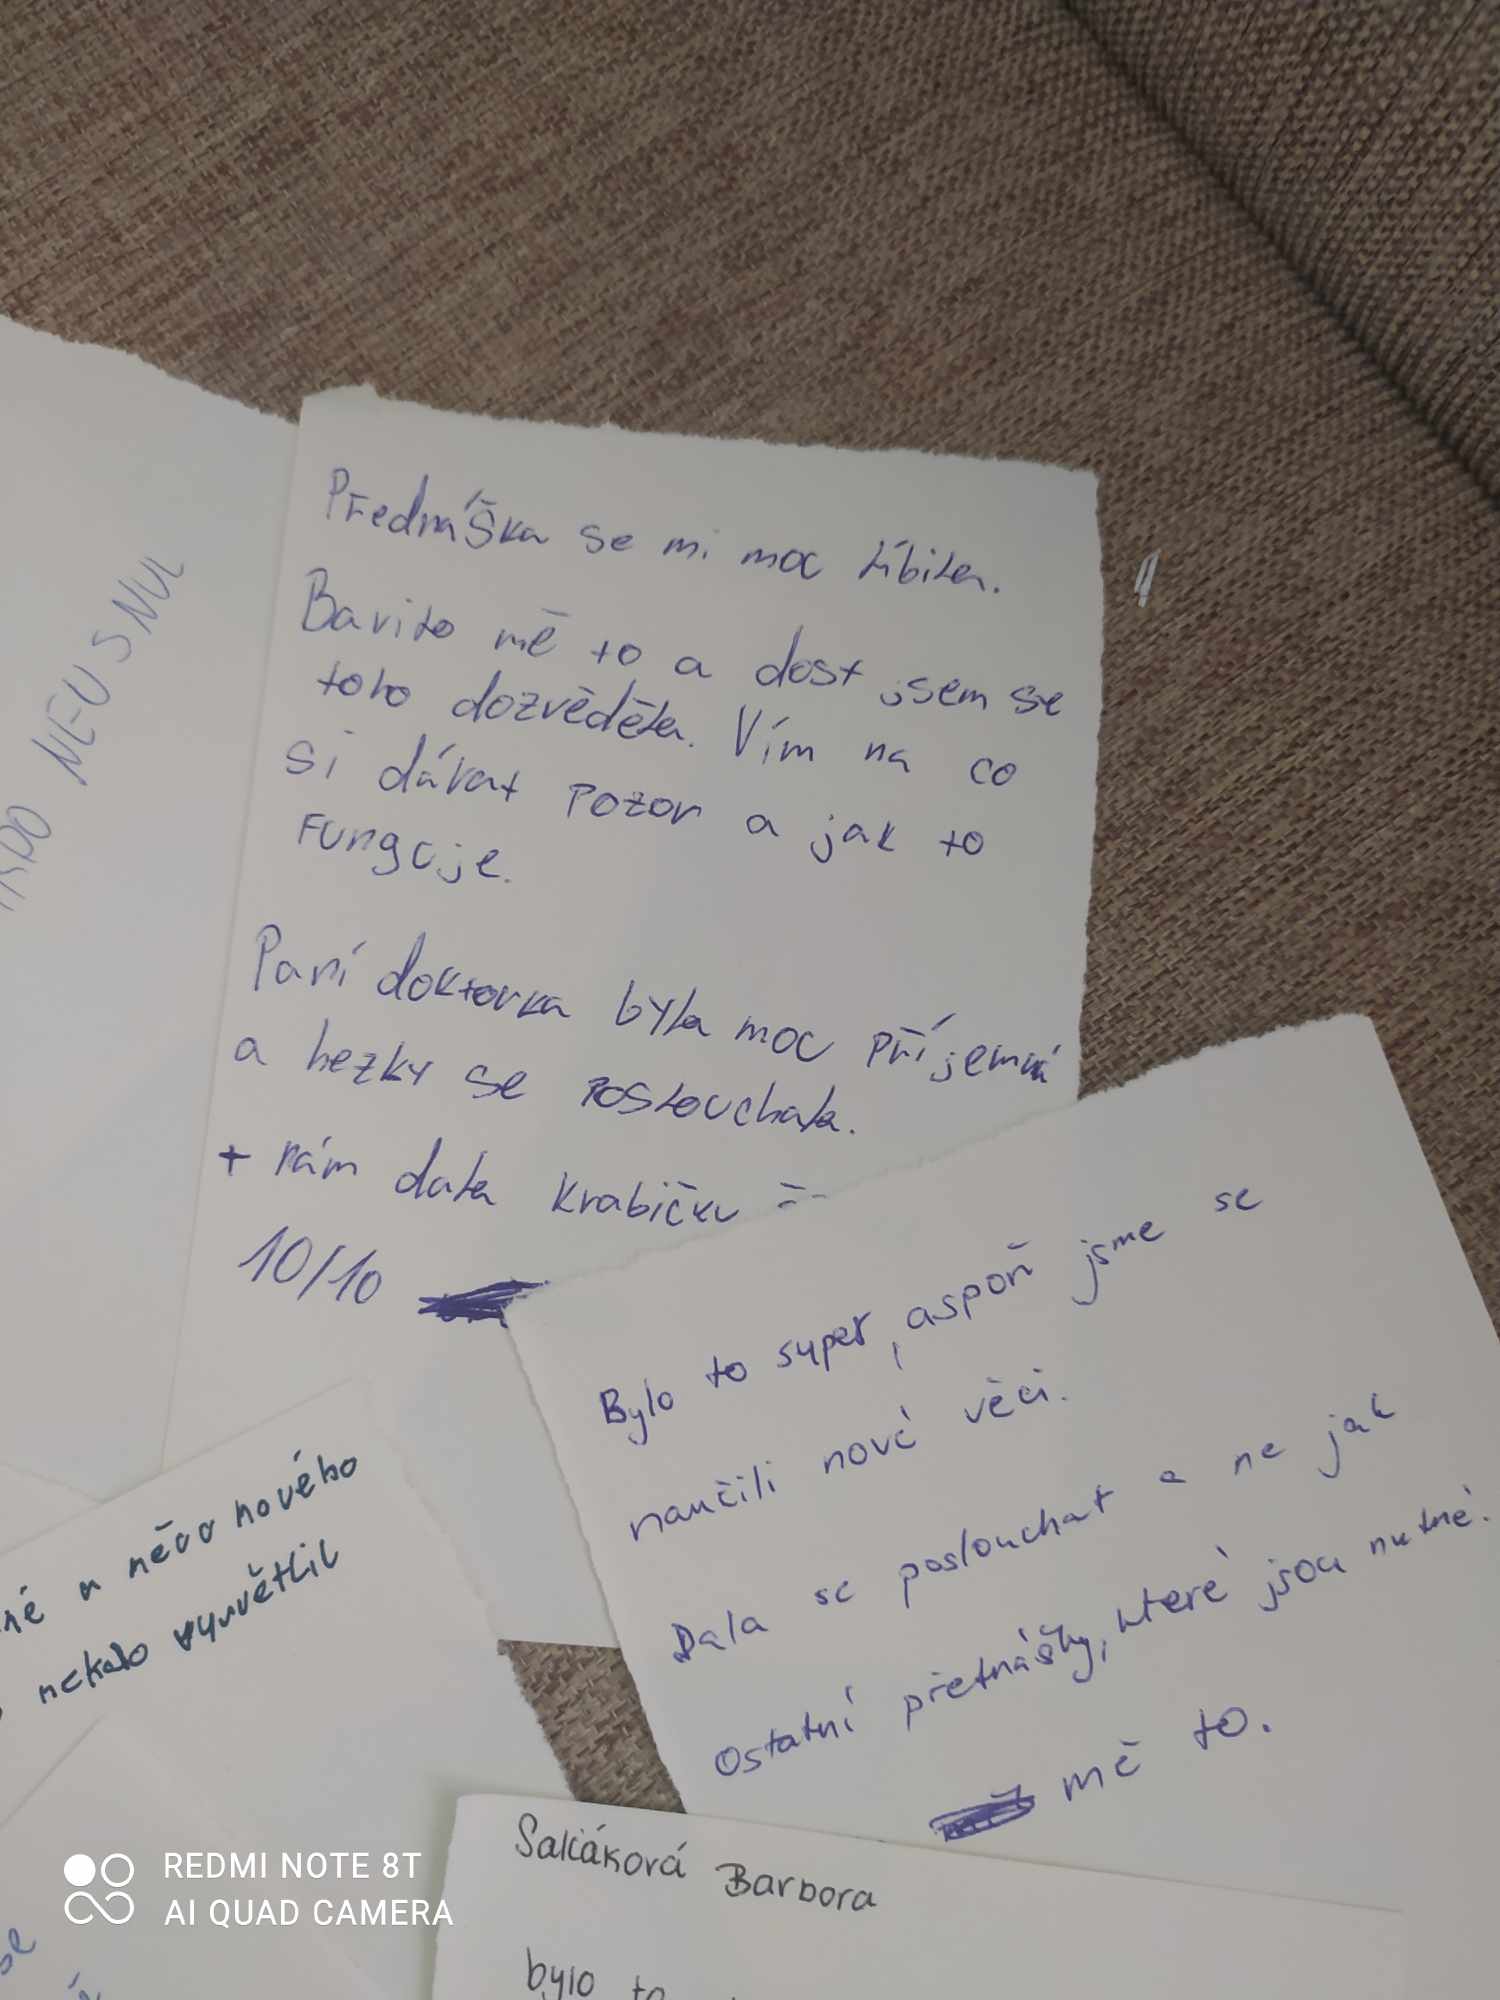 NEUSNUL
Přednáška se mi moc líbila.
Bavilo mě to a dost jsem se
toho dozvěděla. Vím na co
si dávat pozor a jak to
funguje.
Paní doktorka byla moc příjemná
a hezky se poslouchala.
+ nám dala krabičku
10/10
Bylo to super, aspoň jsme se
naučili nové věci.
Dala se poslouchat a ne jak
ostatní přetnášky, které jsou nutné.
mě to.
něco nového
vysvětlil
Barbora
bylo to
REDMI NOTE 8T
AI QUAD CAMERA